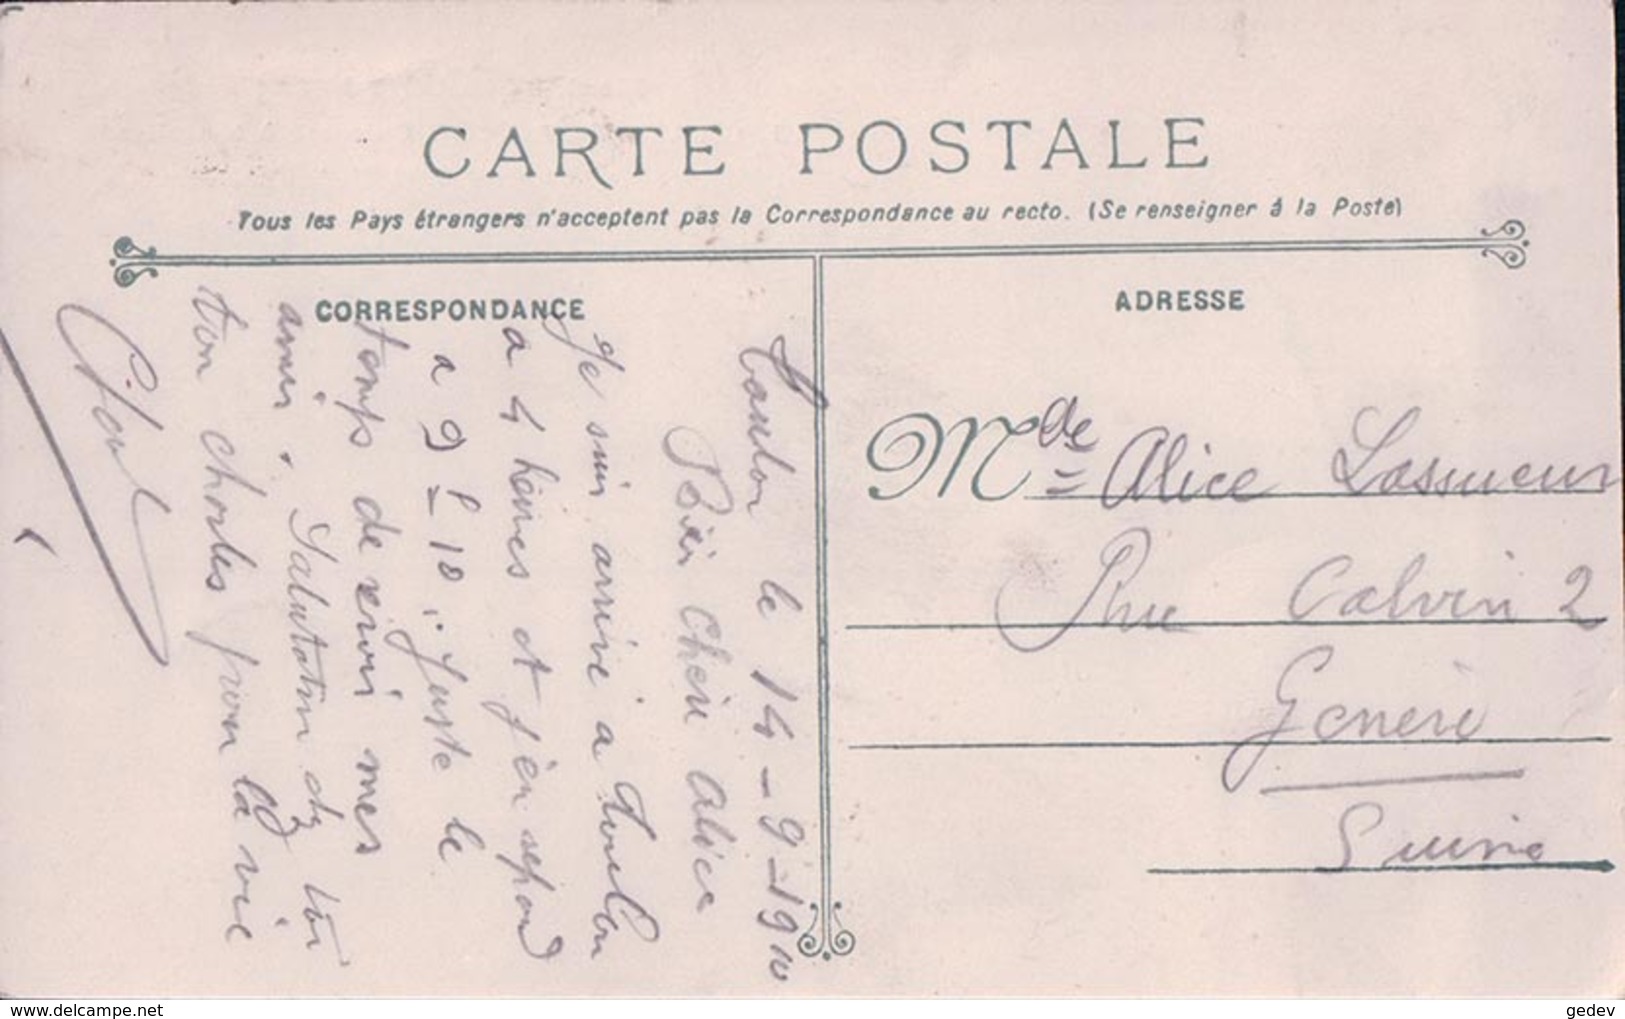 CARTE POSTALE
Tous les Pays étrangers n'acceptent pas la Correspondance au recto. (Se renseigner à la Poste)
CORRESPONDANCE
Toulon le 14-9-1910
Bien Cheri Alice
Je suis arrivé a Toulon
a 4 heures et j'en repond
a 9 10. Juste le
temps de revoir mes
amis. Salutation de toi
ton charles pour la vie
Charl
ADRESSE
Mde Alice Lassueur
Rue Calvin 2
Genève
Suisse
gedev